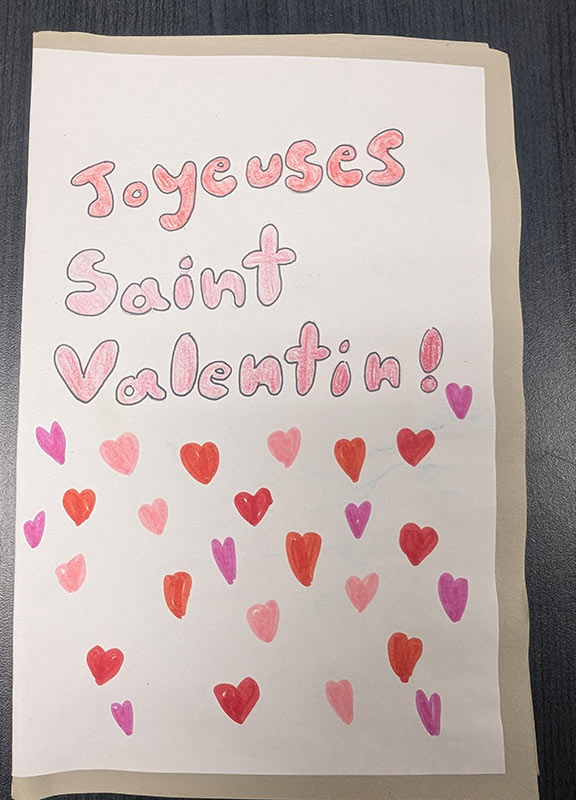 Joyeuses
Saint
Valentin!